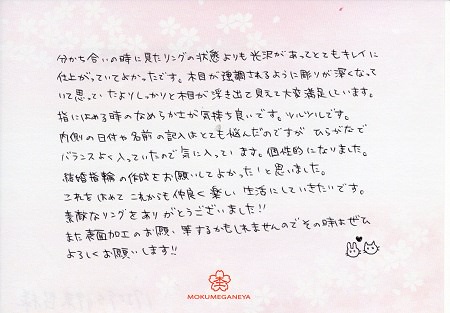 分かち合いの時に見たリングの状態よりも光沢があってとてもキレイに
仕上がっていてよかったです。木目が強調されるように彫りが深くなって
いて思っていたよりしっかりと木目が浮き出て見えて大変満足しています。
指にはめる時のなめらかさが気持ち良いです。ツルツルです。
内側の日付や名前の記入はとても悩んだのですが ひらがなで
バランスよく入っていたので気に入っています。個性的になりました。
結婚指輪の作成をお願いしてよかった!と思いました。
これをはめて これからも仲良く楽しい生活にしていきたいです。
素敵なリングをありがとうございました!!
また表面加工のお願い等するかもしれませんのでその時はぜひ
よろしくお願いします!!
MOKUMEGANEYA